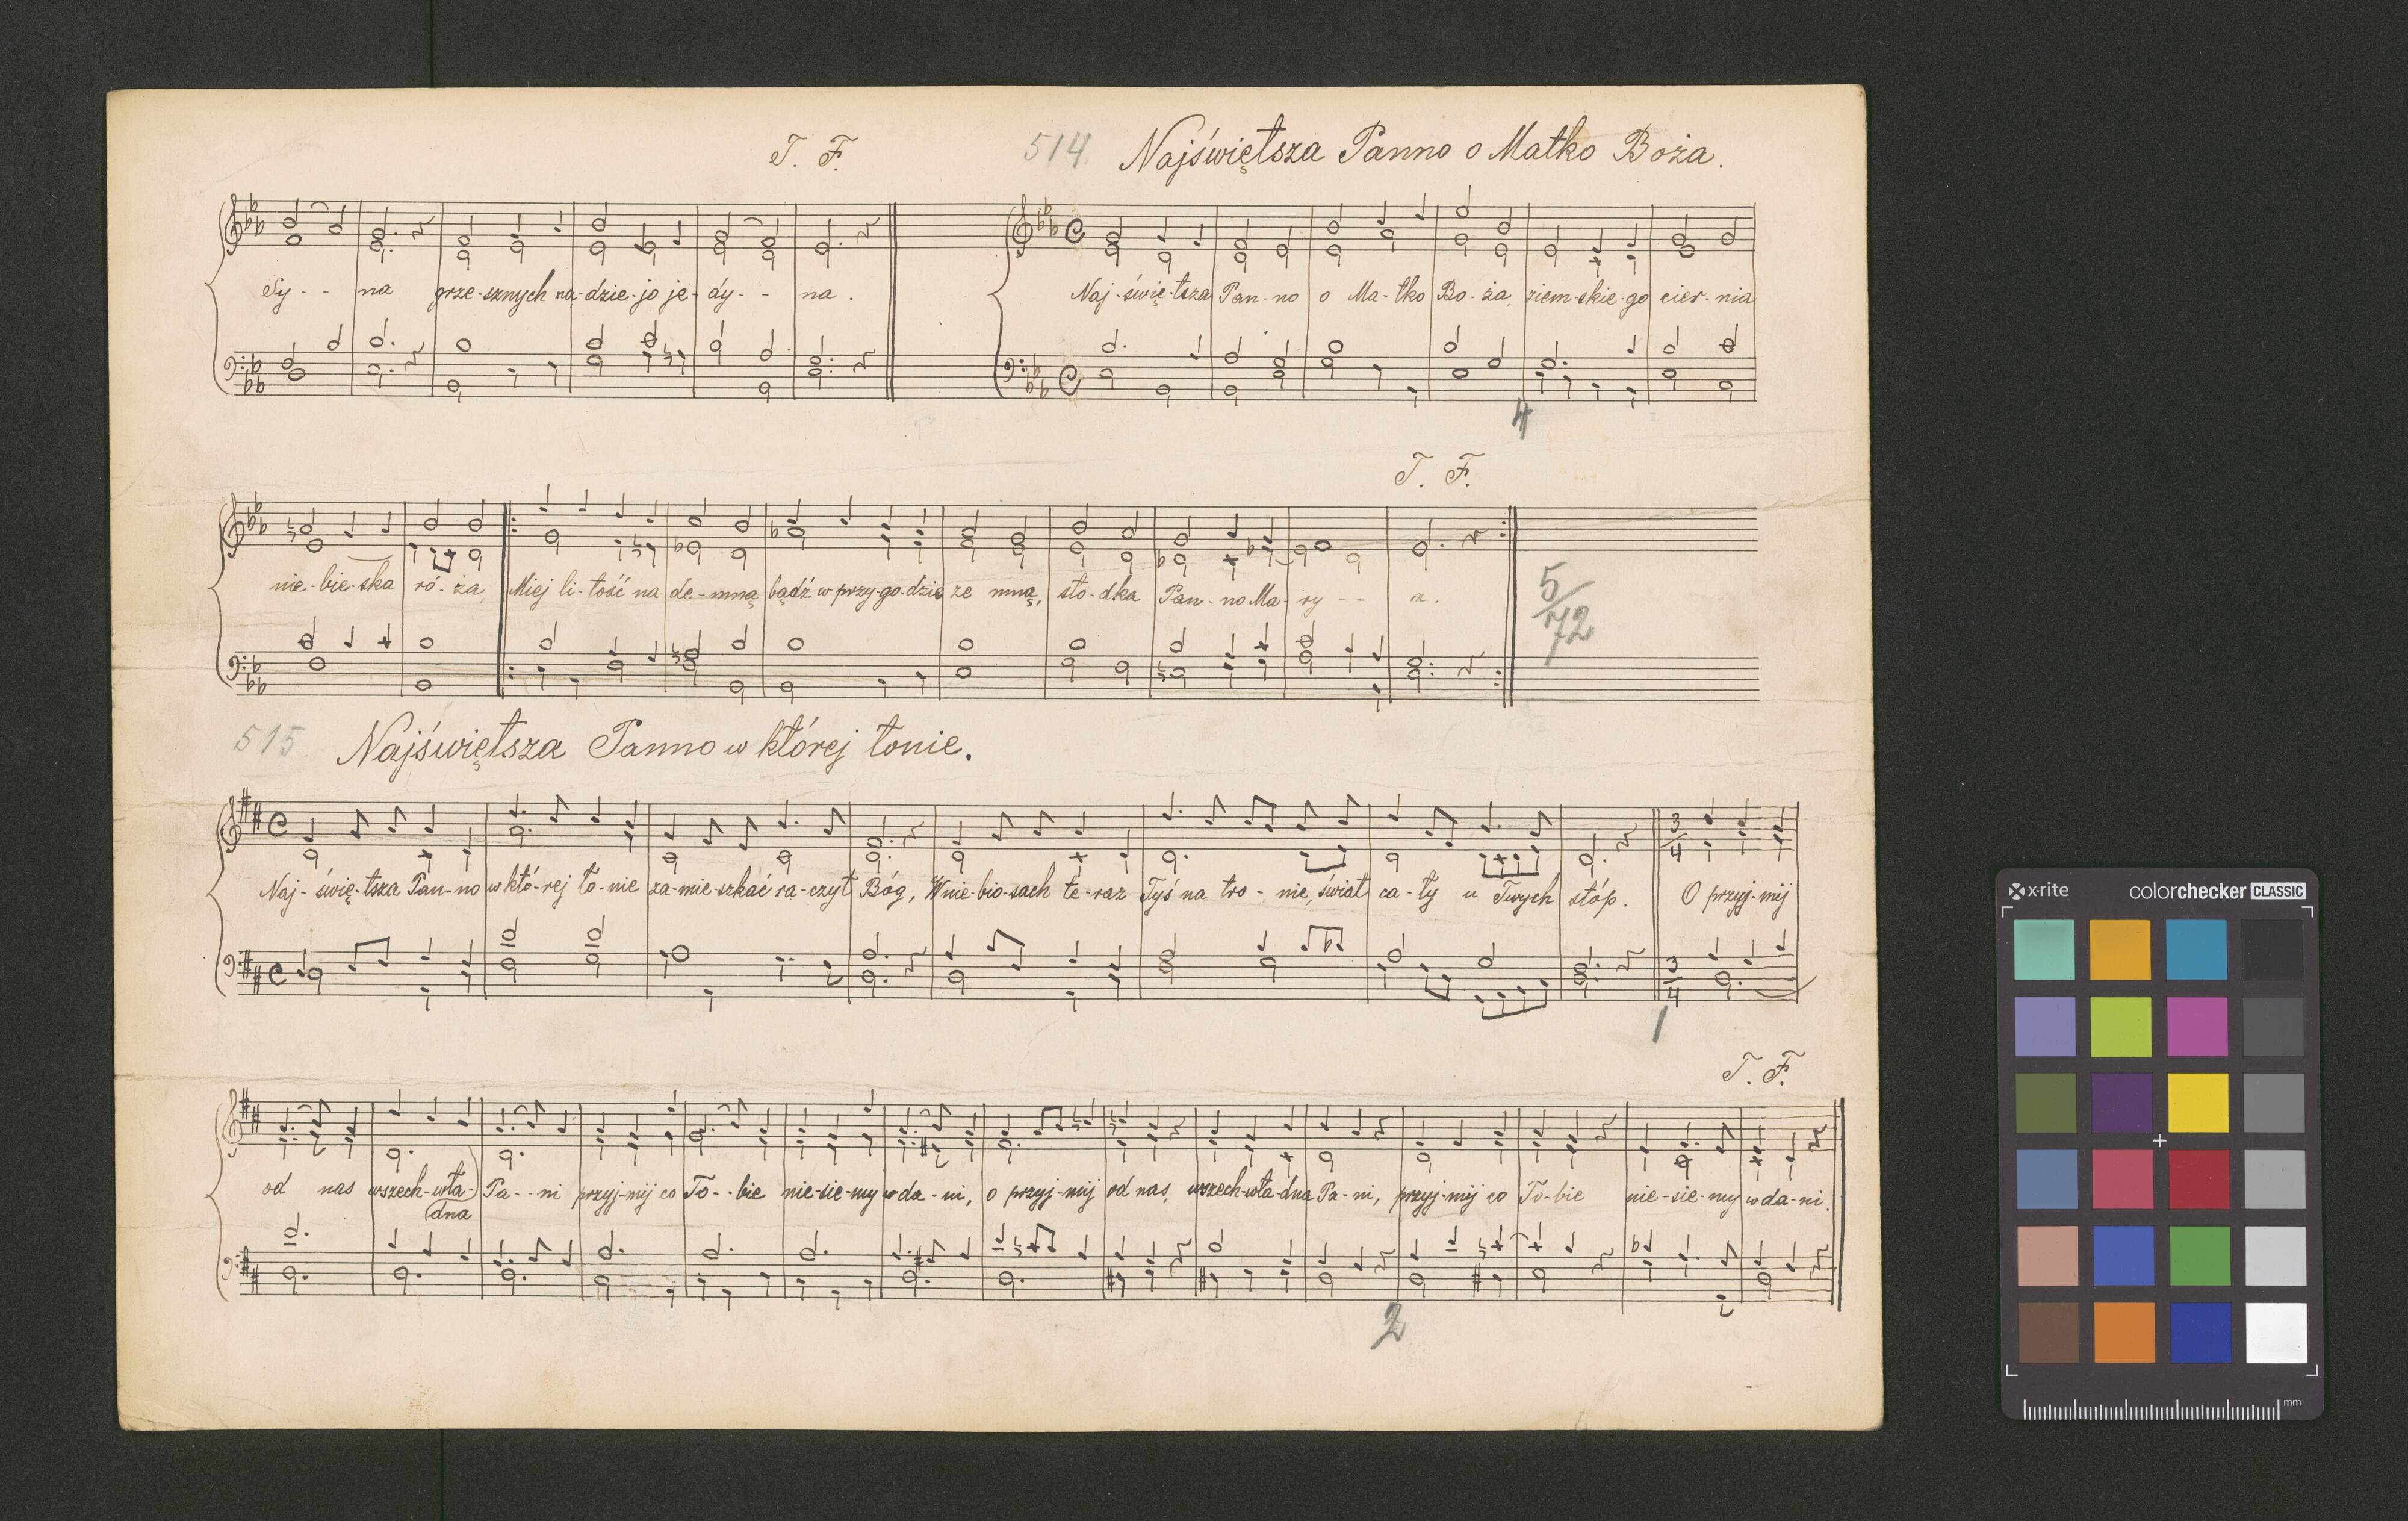 T. F.
514. Najświętsza Panno o Matko Boża.
Sy - - na grze-sznych na-dzie-jo je-dy - - na.
C
Naj-świę-tsza Pan-no o Ma-tko Bo-ża, ziem-skie-go cier-nia
C
4
T. F.
nie-bie-ska ró-ża, Miej li-tość na-de-mną bądź w przy-go-dzie ze mną, sło-dka Pan-no Ma-ry - - a.
5/72
515. Najświętsza Panno w której łonie.
C 3/4
Naj-świę-tsza Pan-no w któ-rej ło-nie za-mie-szkać ra-czył Bóg, W nie-bio-sach te-raz Tyś na tro-nie, świat ca-ły u Twych stóp. O przyj-mij
C 3/4
1
T. F.
od nas wszech-wła- Pa - - ni przyj-mij co To - - bie nie-sie-my w da-ni, o przyj-mij od nas, wszech-wła-dna Pa-ni, przyj-mij co To-bie nie-sie-my w da-ni.
dna
2
x-rite colorchecker CLASSIC
mm